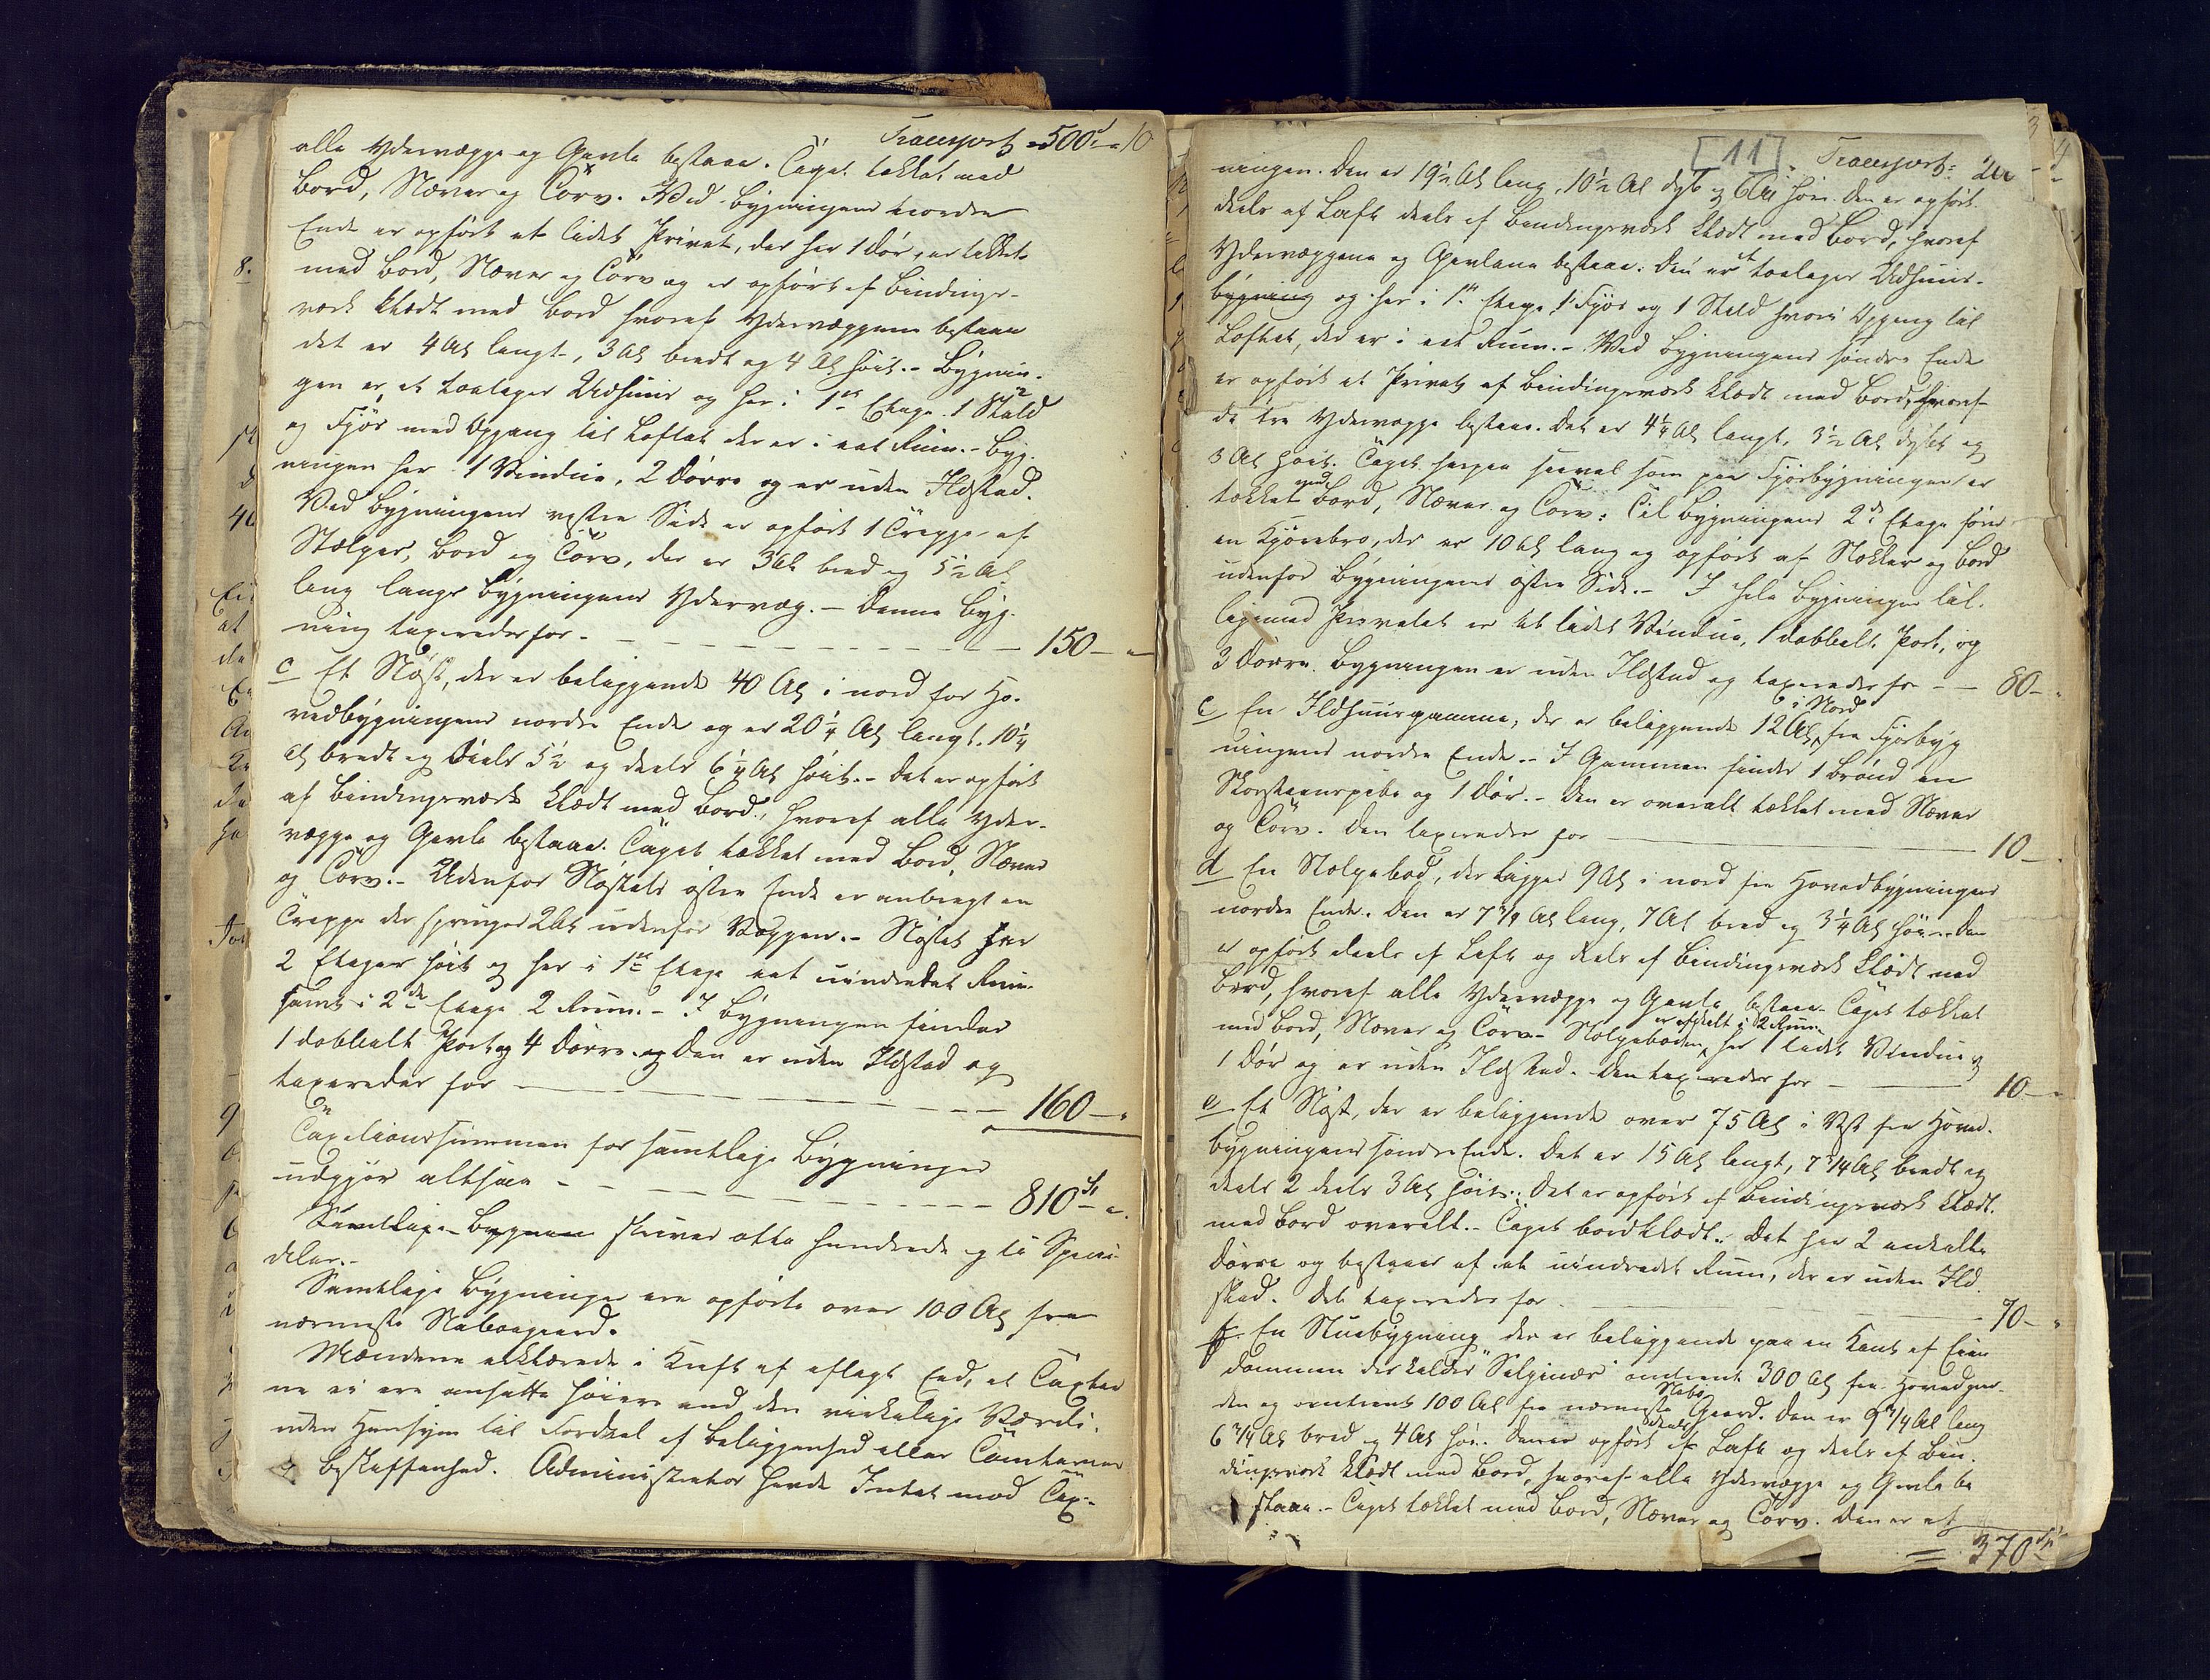 Transport 500 –
alle Ydervægge og Gavle bestaae. Taget tækket med
Bord, Næver og Törv. Ved Bygningens nordre
Ende er opført et lidet Privet, der har 1 Dør, er tækket
med Bord, Næver og Törv og er opført af Bindings-
værk klædt med Bord hvoraf Ydervæggene bestaae
det er 4 Al langt, 3 Al bredt og 4 Al høit. – Bygnin-
gen er et toetages Udhuus og har i 1ste Etage 1 Stald
og Fjøs med Opgang til Loftet der er i eet Rum. – Byg-
ningen har 1 Vindue, 2 Dørre og er uden Ildsted.
Ved Bygningens vestre Side er opført 1 Trappe af
Stolper, Bord og Törv, der er 3 Al bred og 5½ Al
lang langs Bygningens Ydervæg. – Denne Byg-
ning taxeredes for – 150 –
c Et Nøst, der er beliggende 40 Al i nord for Ho-
vedbygningens nordre Ende og er 20¼ Al langt, 10¼
Al bredt og deels 5½ og deels 6¼ Al høit. – Det er opført
af Bindingsværk klædt med Bord, hvoraf alle Yder-
vægge og Gavle bestaae. Taget tækket med Bord, Næver
og Törv. – Udenfor Nøstets østre Ende er anbragt en
Trappe der springer 2 Al udenfor Væggen. – Nøstet har
2 Etager høit og har i 1ste Etage eet uindredet Rum
samt i 2den Etage 2 Rum. – I Bygningen findes
1 dobbelt Port og 4 Dørre. og Den er uden Ildsted og
taxeredes for – 160 –
Taxtionssummen for samtlige Bygninger
udgjør altsaa – 810 –
Samtlige Bygnin skriver otte hundrede og ti Speci-
daler. –
Samtlige Bygninger ere opførte over 100 Al fra
nærmeste Nabogaard.
Mændene erklærede i Kraft af aflagt Eed, at Taxter
ne ei ere ansatte høiere end den virkelige Værdi,
uden Hensyn til Fordeel af Beliggenhed eller Tomternes
Beskaffenhed. Administrator havde Intet mod Tax-
[11] Transport:
ningen. Den er 19½ Al lang, 10½ Al dyb og 6 Al høi. Den er opført
deels af Laft deels af Bindingsværk klædt med Bord, hvoraf
Ydervæggene og Gavlene bestaae. Den er et toetages Udhuus-
bygning og har i 1ste Etage 1 Fjøs og 1 Stald hvori Opgang til
Loftet, der er i eet Rum. – Ved Bygningens søndre Ende
er opført et Privet af Bindingsværk klædt med Bord, hvoraf
de tre Ydervægge bestaae. Det er 4¼ Al langt, 3½ Al dybt og
3 Al høit. Taget herpaa saavel som paa Fjøsbygningen er
tækket med Bord, Næver og Törv. Til Bygningens 2den Etage fører
en Kjørebro, der er 10 Al lang og opført af Stokker og Bord
udenfor Bygningens østre Side. – I hele Bygningen til-
ligemed Privetet er et lidet Vindue, 1 dobbelt Port, og
3 Dørre. Bygningen er uden Ildsted og taxeredes for – 80 –
c En Ildhuusgamme, der er beliggende 12 Al i Nord fra Fjøsbyg
ningens nordre Ende. – I Gammen findes 1 Brønd en
Skorsteenspibe og 1 Dør. – Den er overalt tækket med Næver
og Törv. Den taxeredes for – 10 –
d En Stolpebod, der ligger 9 Al i nord fra Hovedbygningens
nordre Ende. Den er 7¾ Al lang, 7 Al bred og 3¼ Al høi. – Den
er opført deels af Laft og deels af Bindingsværk klædt med
Bord, hvoraf alle Ydervægge og Gavle bestaae. Taget tækket
med Bord, Næver og Törv. – Stolpeboden er afdeelt i 2 Rum, har 1 lidet Vindue og
1 Dør og er uden Ildsted. Den taxeredes for – 10 –
e Et Nøst, der er beliggende over 75 Al i Vest fra Hoved-
bygningens søndre Ende. Det er 15 Al langt, 7¾ Al bredt og
deels 2 deels 3 Al høit. Det er opført af Bindingsværk klædt
med Bord overalt. – Taget bordklædt. Det har 2 enkelte
Dørre og bestaaer af et uindredet Rum, der er uden Ild
sted. Det taxeredes for – 70 –
f En Stuebygning der er beliggende paa en Kant af Eien
dommen der kaldes "Selginæs" omtrent 300 Al fra Hovedgaar-
den og omtrent 100 Al fra nærmeste Nabo Gaard. Den er 9¾ Al lang
6¾ Al bred og 4 Al høi. Den er opført deels af Laft og deels af Bin-
dingsværk klædt med Bord, hvoraf alle Ydervægge og Gavle be
staae. – Taget tækket med Bord, Næver og Törv. Den er et
= 370